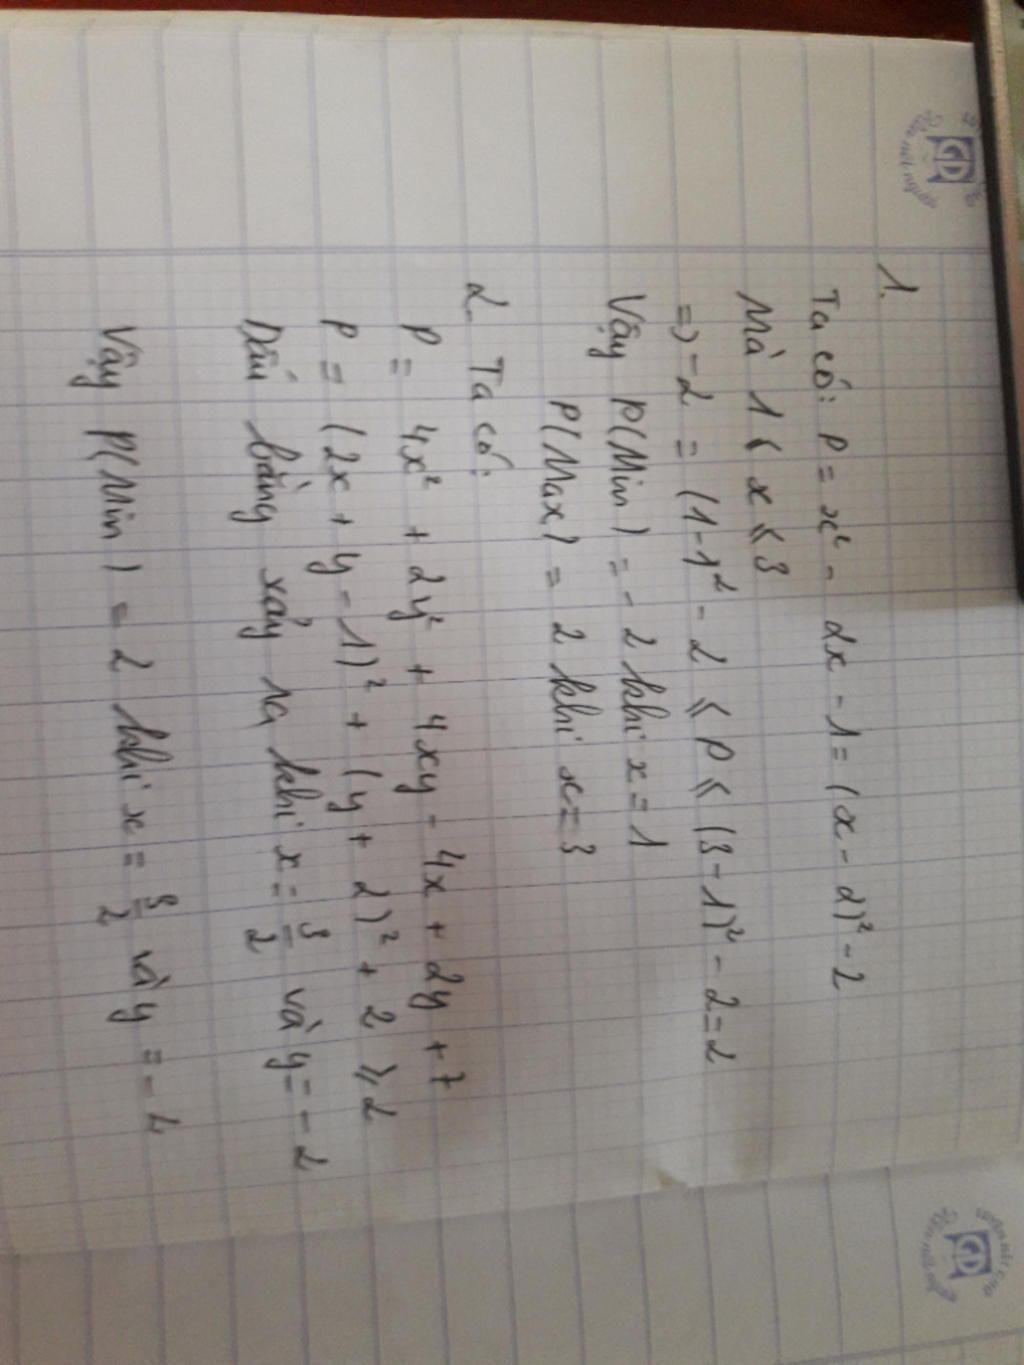 1.
Ta có: P = x² - 2x - 1 = (x - 2)² - 2
Mà 1 ≤ x ≤ 3
=> - 2 = (1 - 1² - 2 ≤ P ≤ (3 - 1)² - 2 = 2
Vậy P(Min) = - 2 khi x = 1
P(Max) = 2 khi x = 3
2. Ta có:
P = 4x² + 2y² + 4xy - 4x + 2y + 7
P = (2x + y - 1)² + (y + 2)² + 2 ≥ 2
Dấu bằng xảy ra khi x = 3/2 và y = - 2
Vậy P(Min) = 2 khi x = 3/2 và y = - 2
GD
GD